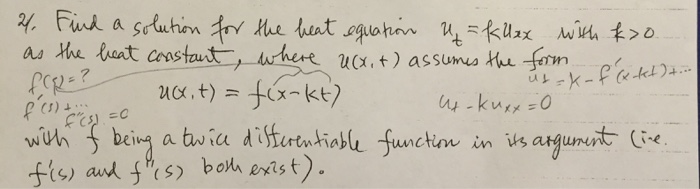 21. Find a solution for the heat equation u_t = k u_xx with k>0
as the heat constant, where u(x,t) assumes the form
f(s)=? u_t = k - f'(x-kt)+...
f'(s)+... u(x,t) = f(x-kt)
f''(s)=0 u_t - k u_xx = 0
with f being a twice differentiable function in its argument (i.e.
f'(s) and f''(s) both exist).